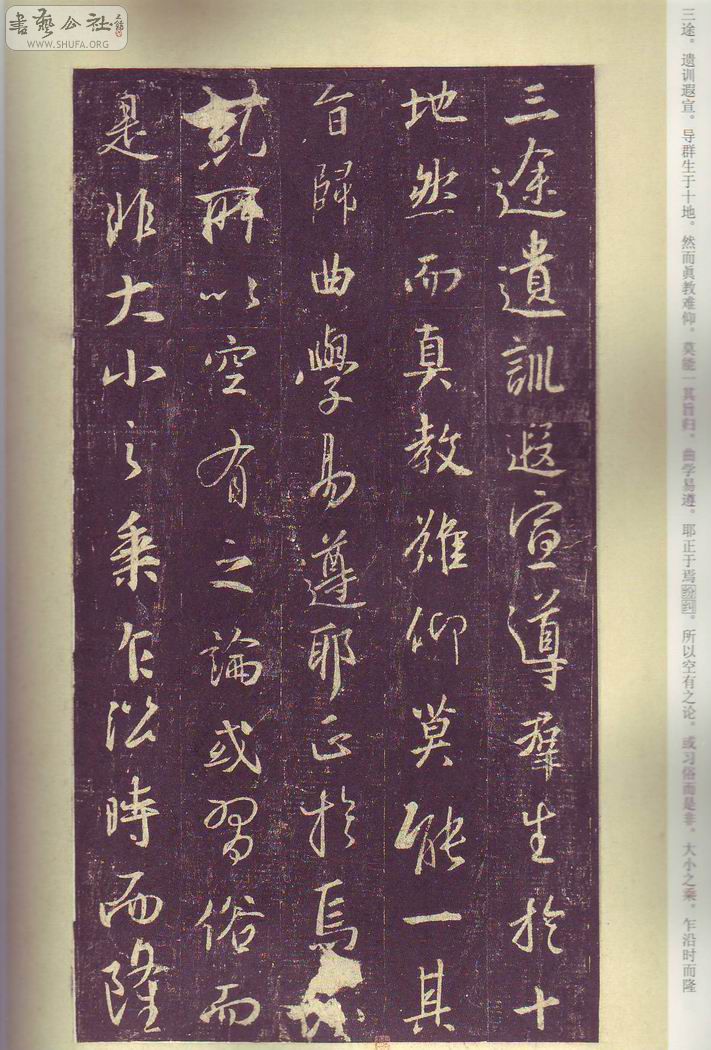 書藝公社
WWW.SHUFA.ORG
三途。遗训遐宣。导群生于十地。然而眞教难仰。莫能一其旨归。曲学易遵。耶正于焉纷纠。所以空有之论。或习俗而是非。大小之乘。乍沿时而隆
三途遺訓遐宣導羣生於十
地然而真教難仰莫能一其
旨歸曲學易遵耶正於焉
所以空有之論或習俗而
是非大小之乘乍沿時而隆